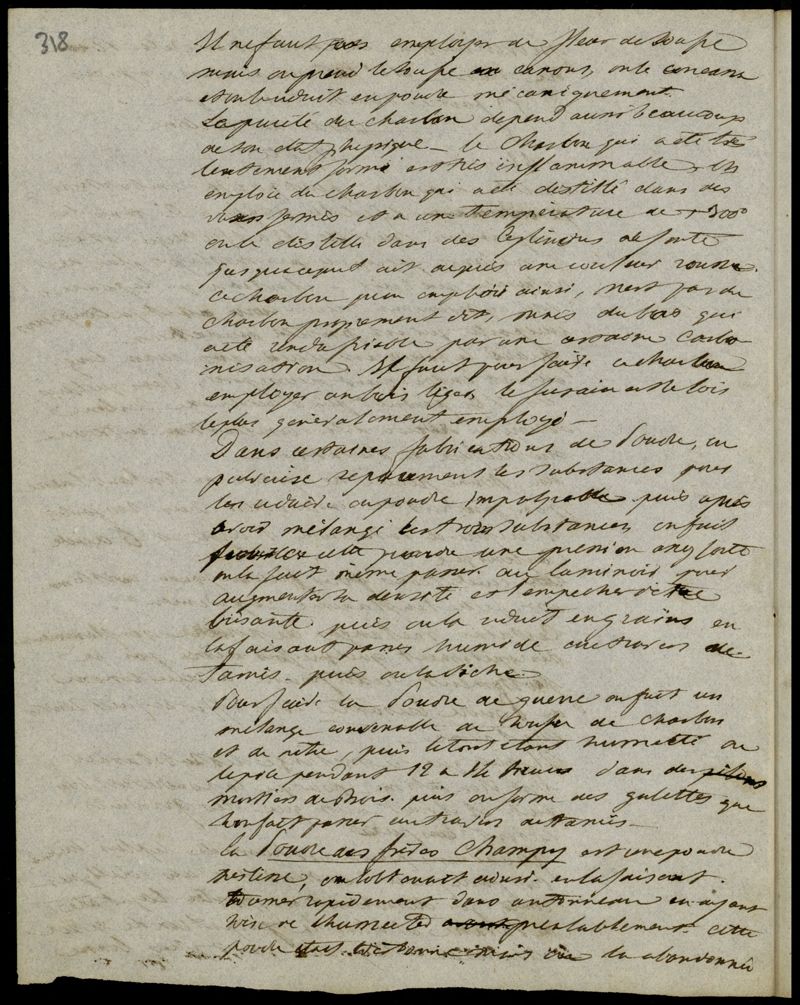 318
Il ne faut pas employer de fleur de soufre
mais on prend le soufre en canons, on le concasse
et on le réduit en poudre mécaniquement.
La pureté du charbon dépend aussi beaucoup
de son état physique – le charbon qui a été très
lentement formé est très inflammable, on
emploie du charbon qui a été distillé dans des
vases fermés et à une température de + 300°
on le distille dans des Cylindres de fonte
jusque ce qu'il ait acquis une couleur rousse.
ce charbon ainsi, n'est pas du
charbon proprement dit, mais du bois qui
a été rendu friable par une certaine carbo
nisation. Il faut pour faire ce charbon
employer un bois léger, le fusain est le bois
le plus généralement employé –
Dans certaines fabrications de Poudre, on
pulvérise séparement les substances pour
les réduire en poudre impalpable puis après
avoir mélangé les trois substances, on fait
cette poudre une pression assez forte
on la fait même passer au laminoir pour
augmenter sa densité et l'empecher d'être
brisante. puis on la réduit en grains en
la faisant passer humide au travers de
tamis. puis on la sèche.
Pour faire la Poudre de guerre on fait un
mélange convenable de soufre de charbon
et de nitre, puis le tout étant humecté on
le pile pendant 12 à 14 heures dans des pilons
mortiers de bois. puis on forme des galettes que
l'on fait passer au travers de tamis –
La Poudre des frères Champy est une poudre
on l'obtenait ainsi. en la faisant
tourner rapidement dans un tonneau en ayant
soin de l'humecter préalablement. cette
poudre était très bonne mais on l'a abandonnée